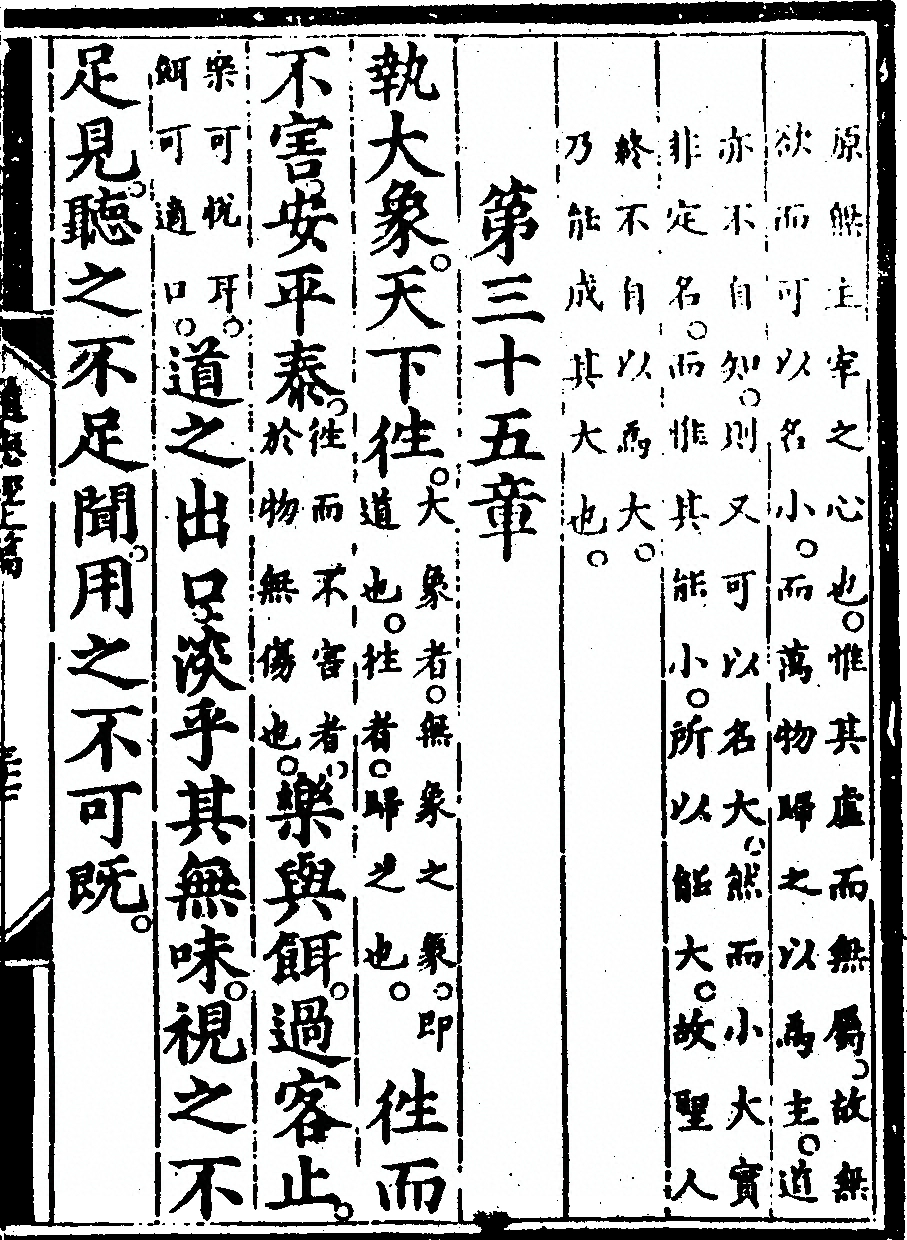 原無主宰之心也。惟其虛而無屬。故無
欲而可以名小。而萬物歸之以為主。道
亦不自知。則又可以名大。然而小大實
非定名。而惟其能小。所以能大。故聖人
終不自以為大。
乃能成其大也。
第三十五章
執大象。天下徃。
大象者。無象之象。即
道也。徃者。歸之也。
徃而
不害。安平泰。
徃而不害者。
於物無傷也。
樂與餌。過客止。
樂可悅耳。
餌可適口。
道之出口。淡乎其無味。視之不
足見。聽之不足聞。用之不可既。